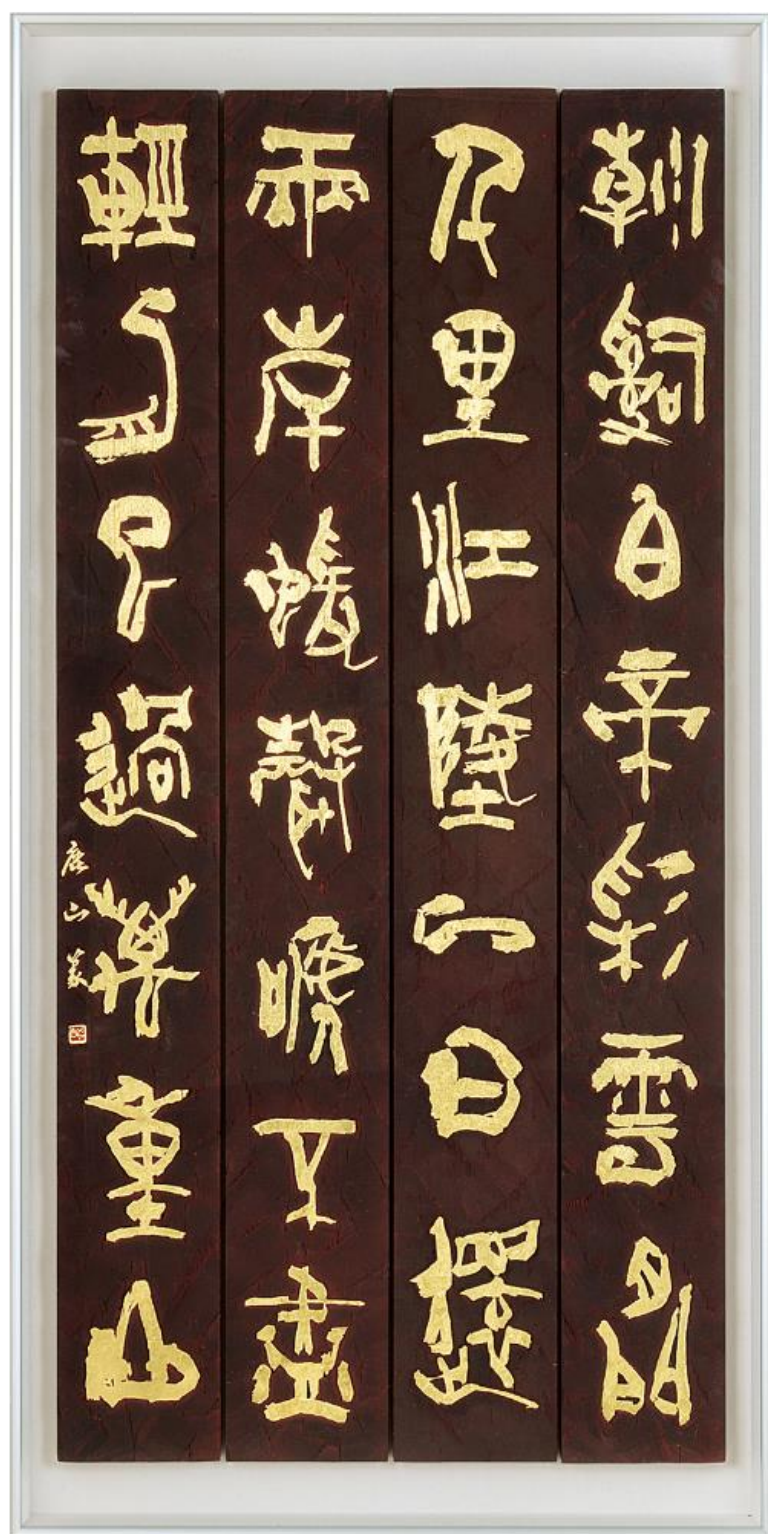 朝辭白帝彩雲間
千里江陵一日還
兩岸蝯聲嗁不盡
輕舟已過萬重山